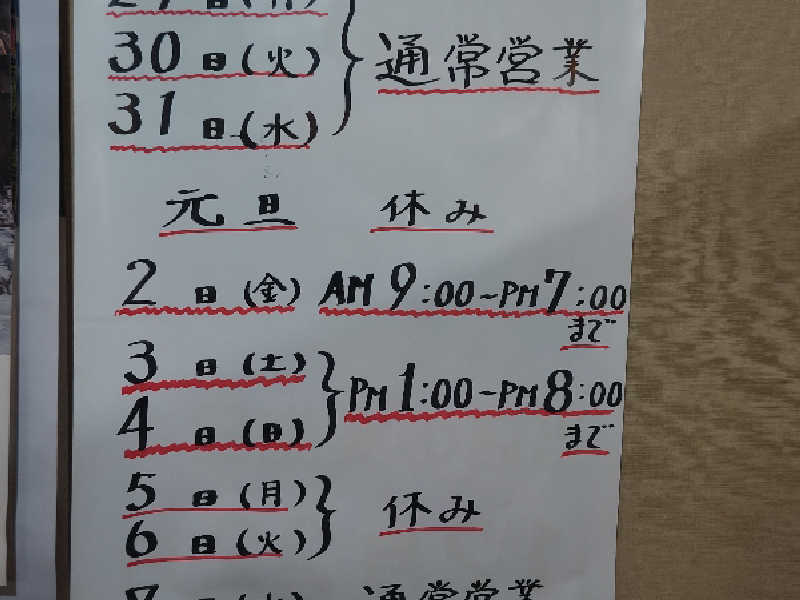 30日(火)
31日(水)
通常営業
元旦 休み
2日(金) AM9:00~PM7:00
まで
3日(土)
4日(日)
PM1:00~PM8:00
まで
5日(月)
6日(火)
休み
通常営業